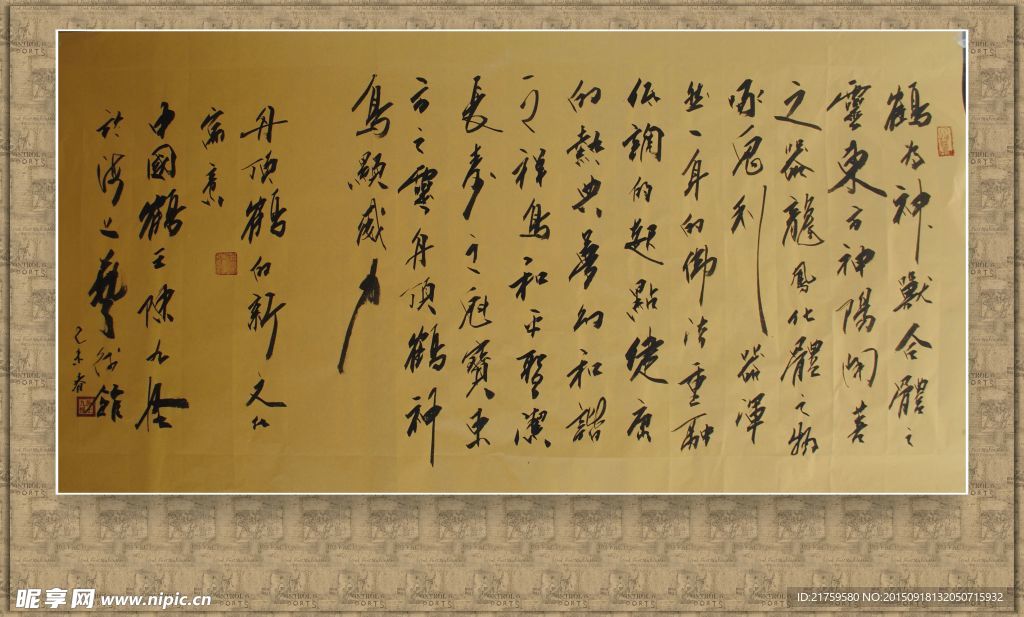 鶴为神獸合體之
靈東方神陽闭善
之器龍鳳化體之物
啄鬼利器渾
然一身的佛法重融
低調的起點健康
的熱典夢幻和諧
之祥鳥和平聖潔
長壽之冠寶東
方之靈丹頂鶴神
鳥顯威力
丹頂鶴的新文化
寓意
中國鶴王陳九
於海上藝術館
己未春
昵享网 www.nipic.cn
ID:21759580 NO:20150918132050715932